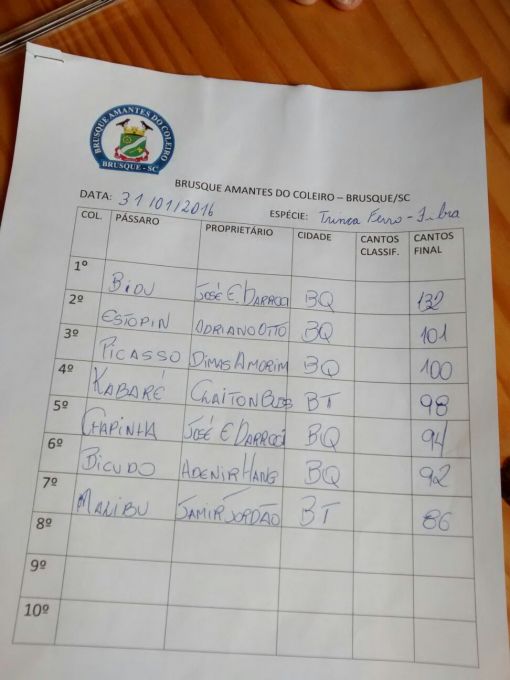 BRUSQUE AMANTES DO COLEIRO
BRUSQUE - SC
BRUSQUE AMANTES DO COLEIRO – BRUSQUE/SC
DATA: 31/01/2016 ESPÉCIE: Trinca Ferro - Fibra
COL. PÁSSARO PROPRIETÁRIO CIDADE CANTOS CLASSIF. CANTOS FINAL
1º BIDU JOSÉ E. DARROCI BQ 132
2º ESTOPIN ADRIANO OTTO BQ 101
3º PICASSO DIMAS AMORIM BQ 100
4º KABARÉ CLAITON BT 98
5º CHAPINHA JOSÉ E DARROCI BQ 94
6º BICUDO ADENIR HANG BQ 92
7º MALIBU JAMIR JORDÃO BT 86
8º
9º
10º